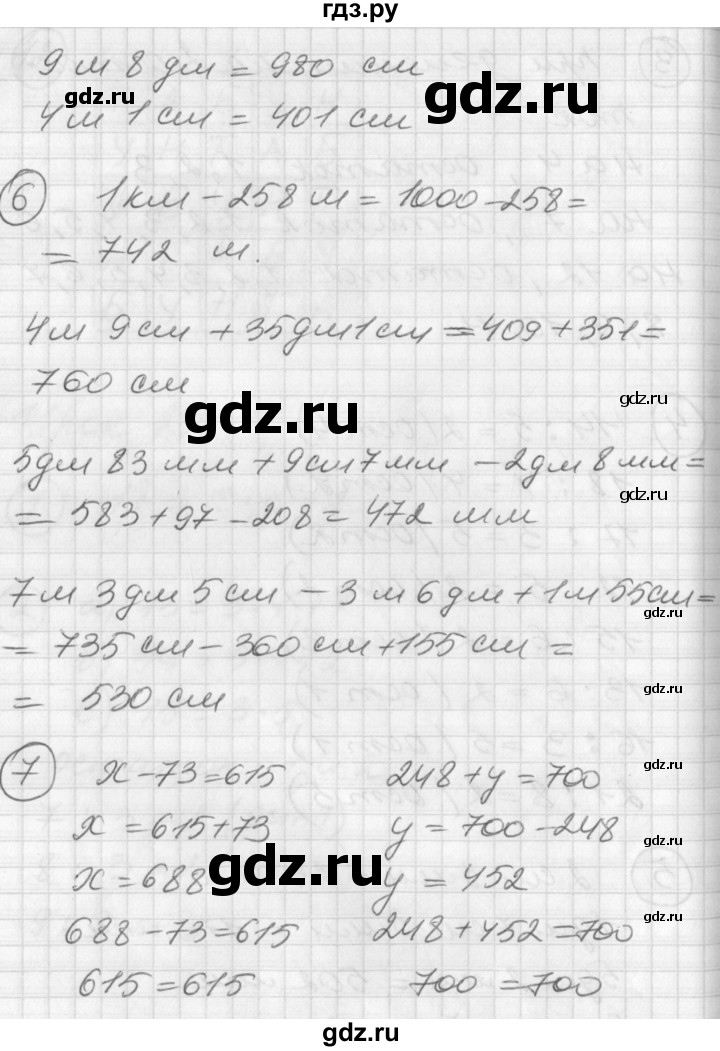 гдз.ру
9 м 8 дм = 980 см
gdz.ru
gdz.ru
4м 1 см = 401 см
6 1 км - 258 м = 1000 - 258 =
= 742 м.
4м 9 см + 35дм 1 см = 409 + 351 =
760 см
gdz.ru
gdz.ru
5дм 83 мм + 9 см 7 мм - 2 дм 8 мм =
gdz.ru
= 583 + 97 - 208 = 472 мм
7 м 3 дм 5 см - 3 м 6 дм + 1 м 55 см =
gdz.ru
= 735 см - 360 см + 155 см =
gdz.ru
= 530 см
gdz.ru
7 x - 73 = 615 248 + y = 700
gdz.ru
x = 615 + 73 y = 700 - 248
gdz.ru
x = 688 y = 452
gdz.ru
688 - 73 = 615 248 + 452 = 700
gdz.ru
615 = 615 700 = 700
gdz.ru
gdz.ru